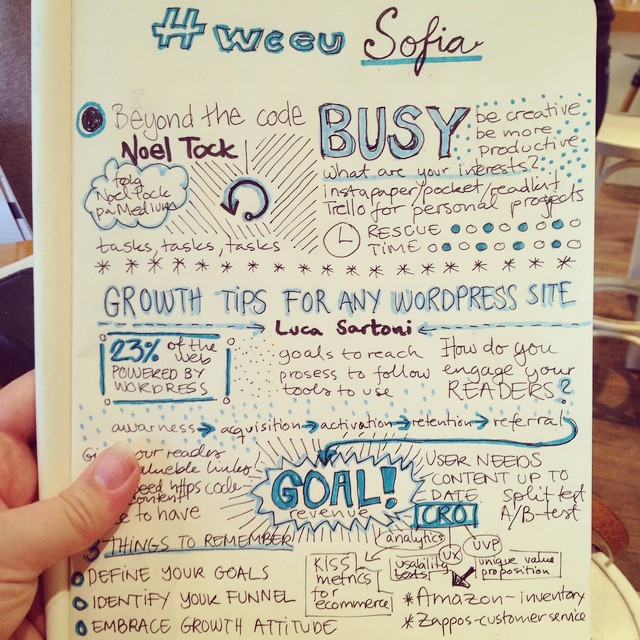 #wceu Sofia
Beyond the code
Noel Tock
følg
Noel Tock
på Medium
tasks, tasks, tasks
BUSY
be creative
be more
productive
what are your interests?
instapaper/pocket/readlist
Trello for personal projects
RESCUE
TIME
GROWTH TIPS FOR ANY WORDPRESS SITE
Luca Sartoni
23% of the
web
POWERED BY
WORDPRESS
goals to reach
prosess to follow
tools to use
How do you
engage your
READERS?
awarness → acquisition → activation → retention → referral
our readers
valueble links
need https code
content
to have
GOAL!
revenue
USER NEEDS
CONTENT UP TO
DATE
Split test
A/B-test
CRO
analytics
UX
UVP
KISS
metrics
for
ecommerce
usability
tests
unique value
proposition
3 THINGS TO REMEMBER
DEFINE YOUR GOALS
IDENTIFY YOUR FUNNEL
EMBRACE GROWTH ATTITUDE
*Amazon-inventory
*Zappos-customer service